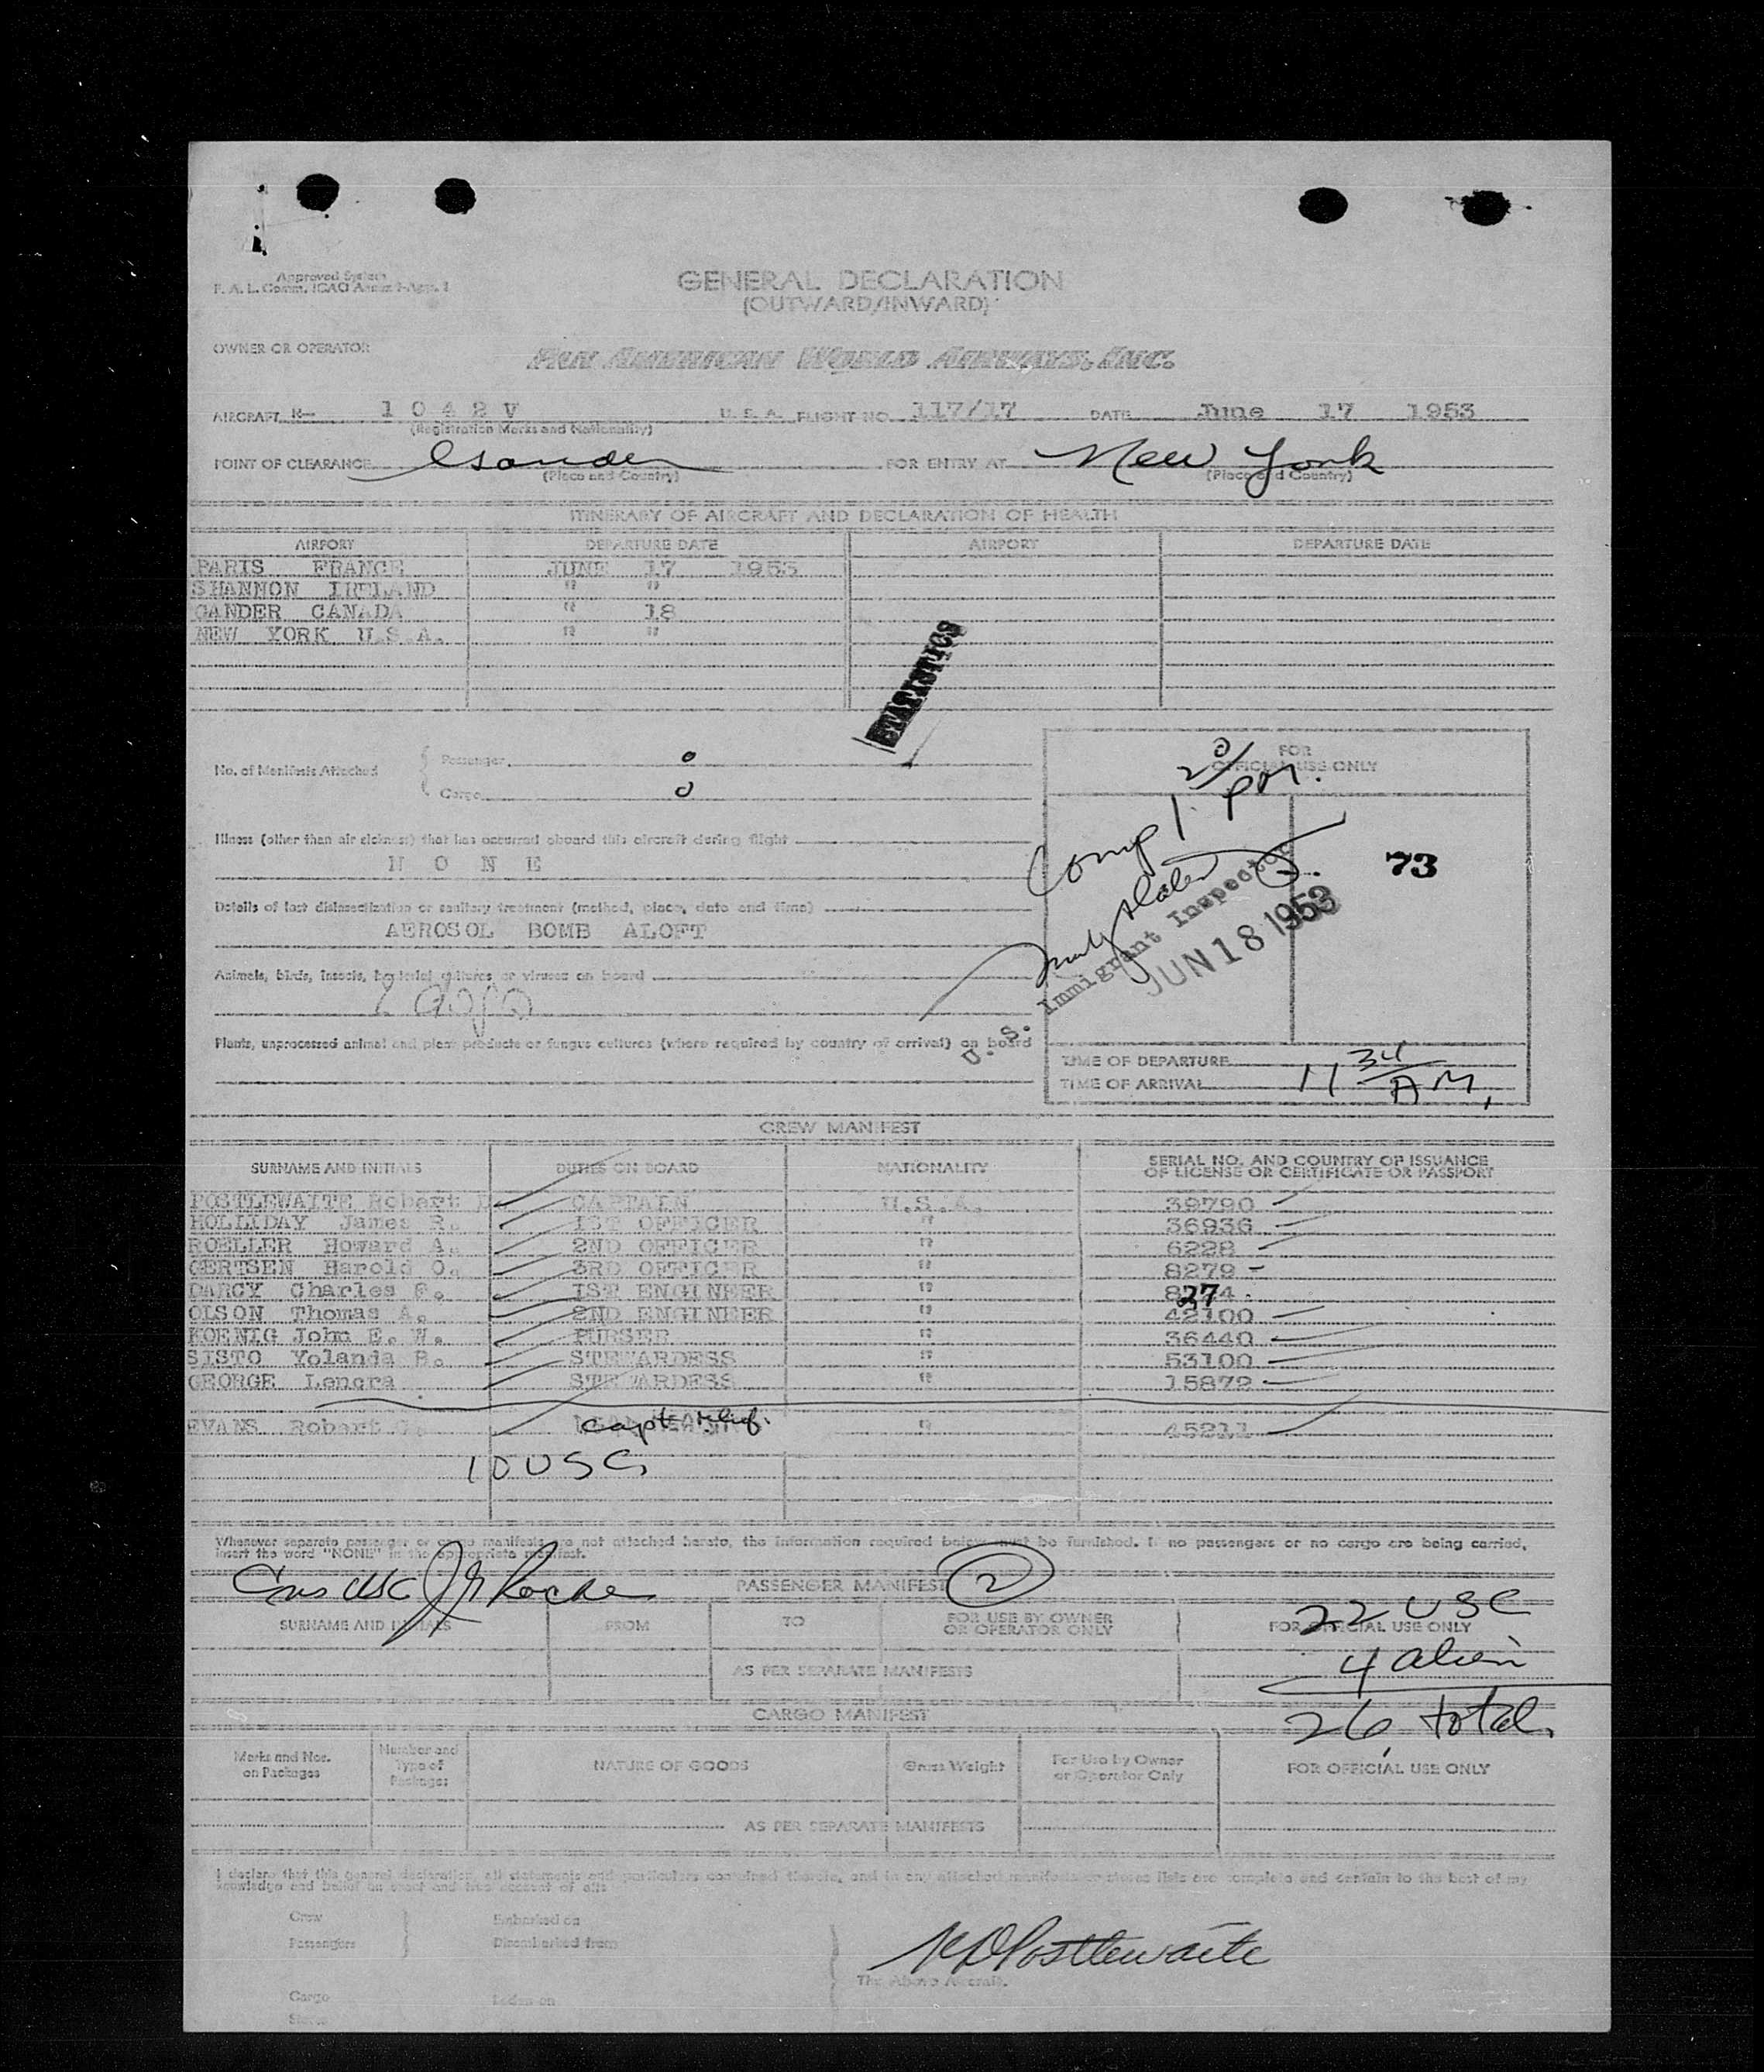 Approved System
F. A. L. Comm. ICAO Annex 9-App. 1
GENERAL DECLARATION
(OUTWARD/INWARD)
OWNER OR OPERATOR
PAN AMERICAN WORLD AIRWAYS, INC.
AIRCRAFT N- 1 0 4 2 V U. S. A. FLIGHT NO. 117/17 DATE June 17 1953
(Registration Marks and Nationality)
POINT OF CLEARANCE Gander FOR ENTRY AT New York
(Place and Country) (Place and Country)
ITINERARY OF AIRCRAFT AND DECLARATION OF HEALTH
AIRPORT DEPARTURE DATE AIRPORT DEPARTURE DATE
PARIS FRANCE JUNE 17 1953
SHANNON IRELAND " "
GANDER CANADA " 18
NEW YORK U.S.A. " "
STATISTICS
No. of Manifests Attached
Passenger 0
Cargo 0
FOR
OFFICIAL USE ONLY
Comp 1 20/ pm.
73
Illness (other than air sickness) that has occurred aboard this aircraft during flight
N O N E
Details of last disinsectization or sanitary treatment (method, place, date and time)
AEROSOL BOMB ALOFT
U. S. Immigrant Inspector
JUN 18 1953
Animals, birds, insects, bacterial cultures or viruses on board
2 dogs
Plants, unprocessed animal and plant products or fungus cultures (where required by country of arrival) on board
TIME OF DEPARTURE
TIME OF ARRIVAL 11 34 AM,
CREW MANIFEST
SURNAME AND INITIALS DUTIES ON BOARD NATIONALITY SERIAL NO. AND COUNTRY OF ISSUANCE
OF LICENSE OR CERTIFICATE OR PASSPORT
POSTLEWAITE Robert D CAPTAIN U.S.A. 39790
HOLLIDAY James R. 1ST OFFICER " 36936
ROELLER Howard A. 2ND OFFICER " 6228
GERTSEN Harold O. 3RD OFFICER " 8279
DARCY Charles F. 1ST ENGINEER " 8274
OLSON Thomas A. 2ND ENGINEER " 42100
KOENIG John E. W. PURSER " 36440
SISTO Yolanda B. STEWARDESS " 53100
GEORGE Lenora STEWARDESS " 15872
EVANS Robert capt relief. " 45211
10 USC
Whenever separate passenger or cargo manifests are not attached hereto, the information required below must be furnished. If no passengers or no cargo are being carried,
insert the word "NONE" in the appropriate manifest.
PASSENGER MANIFEST 2
SURNAME AND INITIALS FROM TO FOR USE BY OWNER
OR OPERATOR ONLY FOR OFFICIAL USE ONLY
22 USC
AS PER SEPARATE MANIFESTS
4 alien
26 total
CARGO MANIFEST
Marks and Nos.
on Packages Number and
Type of
Packages NATURE OF GOODS Gross Weight For Use by Owner
or Operator Only FOR OFFICIAL USE ONLY
AS PER SEPARATE MANIFESTS
I declare that this general declaration, all statements and particulars contained therein, and in any attached manifests or stores lists are complete and contain to the best of my
knowledge and belief an exact and true account of all:
Crew Embarked on
Passengers Disembarked from
RD Postlewaite
The Above Aircraft.
Cargo Laden on
Stores